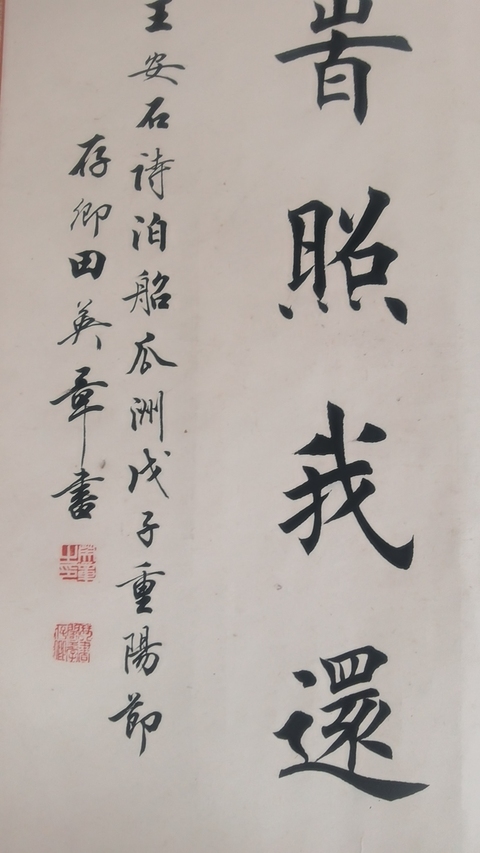 旹照我還
王安石詩泊船瓜洲戊子重陽節
存卿田英章書